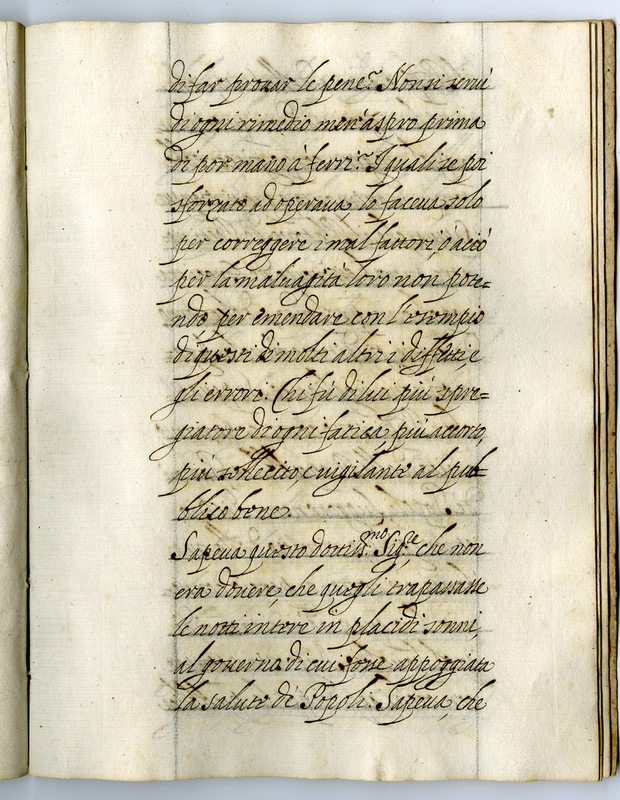 di far prouar le pene? Non si seruì
di ogni rimedio men'aspro prima
di por mano à ferri? I quali se poi
sforzato adoperaua, lo faceua solo
per correggere i mal fattori, ò acciò
per la maluagità loro non poten=
ndo, per emendare con l'esempio
di questi di molti altri i diffetti, e
gli errori. Chi fù di lui più spre=
giatore di ogni fatica, più accorto,
più sollecito e uigilante al pub=
blico bene.
Sapeua questo dottiss.mo Sig.re, che non
era douere, che quegli trapassasse
le notti intere in placidi sonni,
al gouerno di cui fosse appoggiata
la salute de' Popoli. Sapeua, che